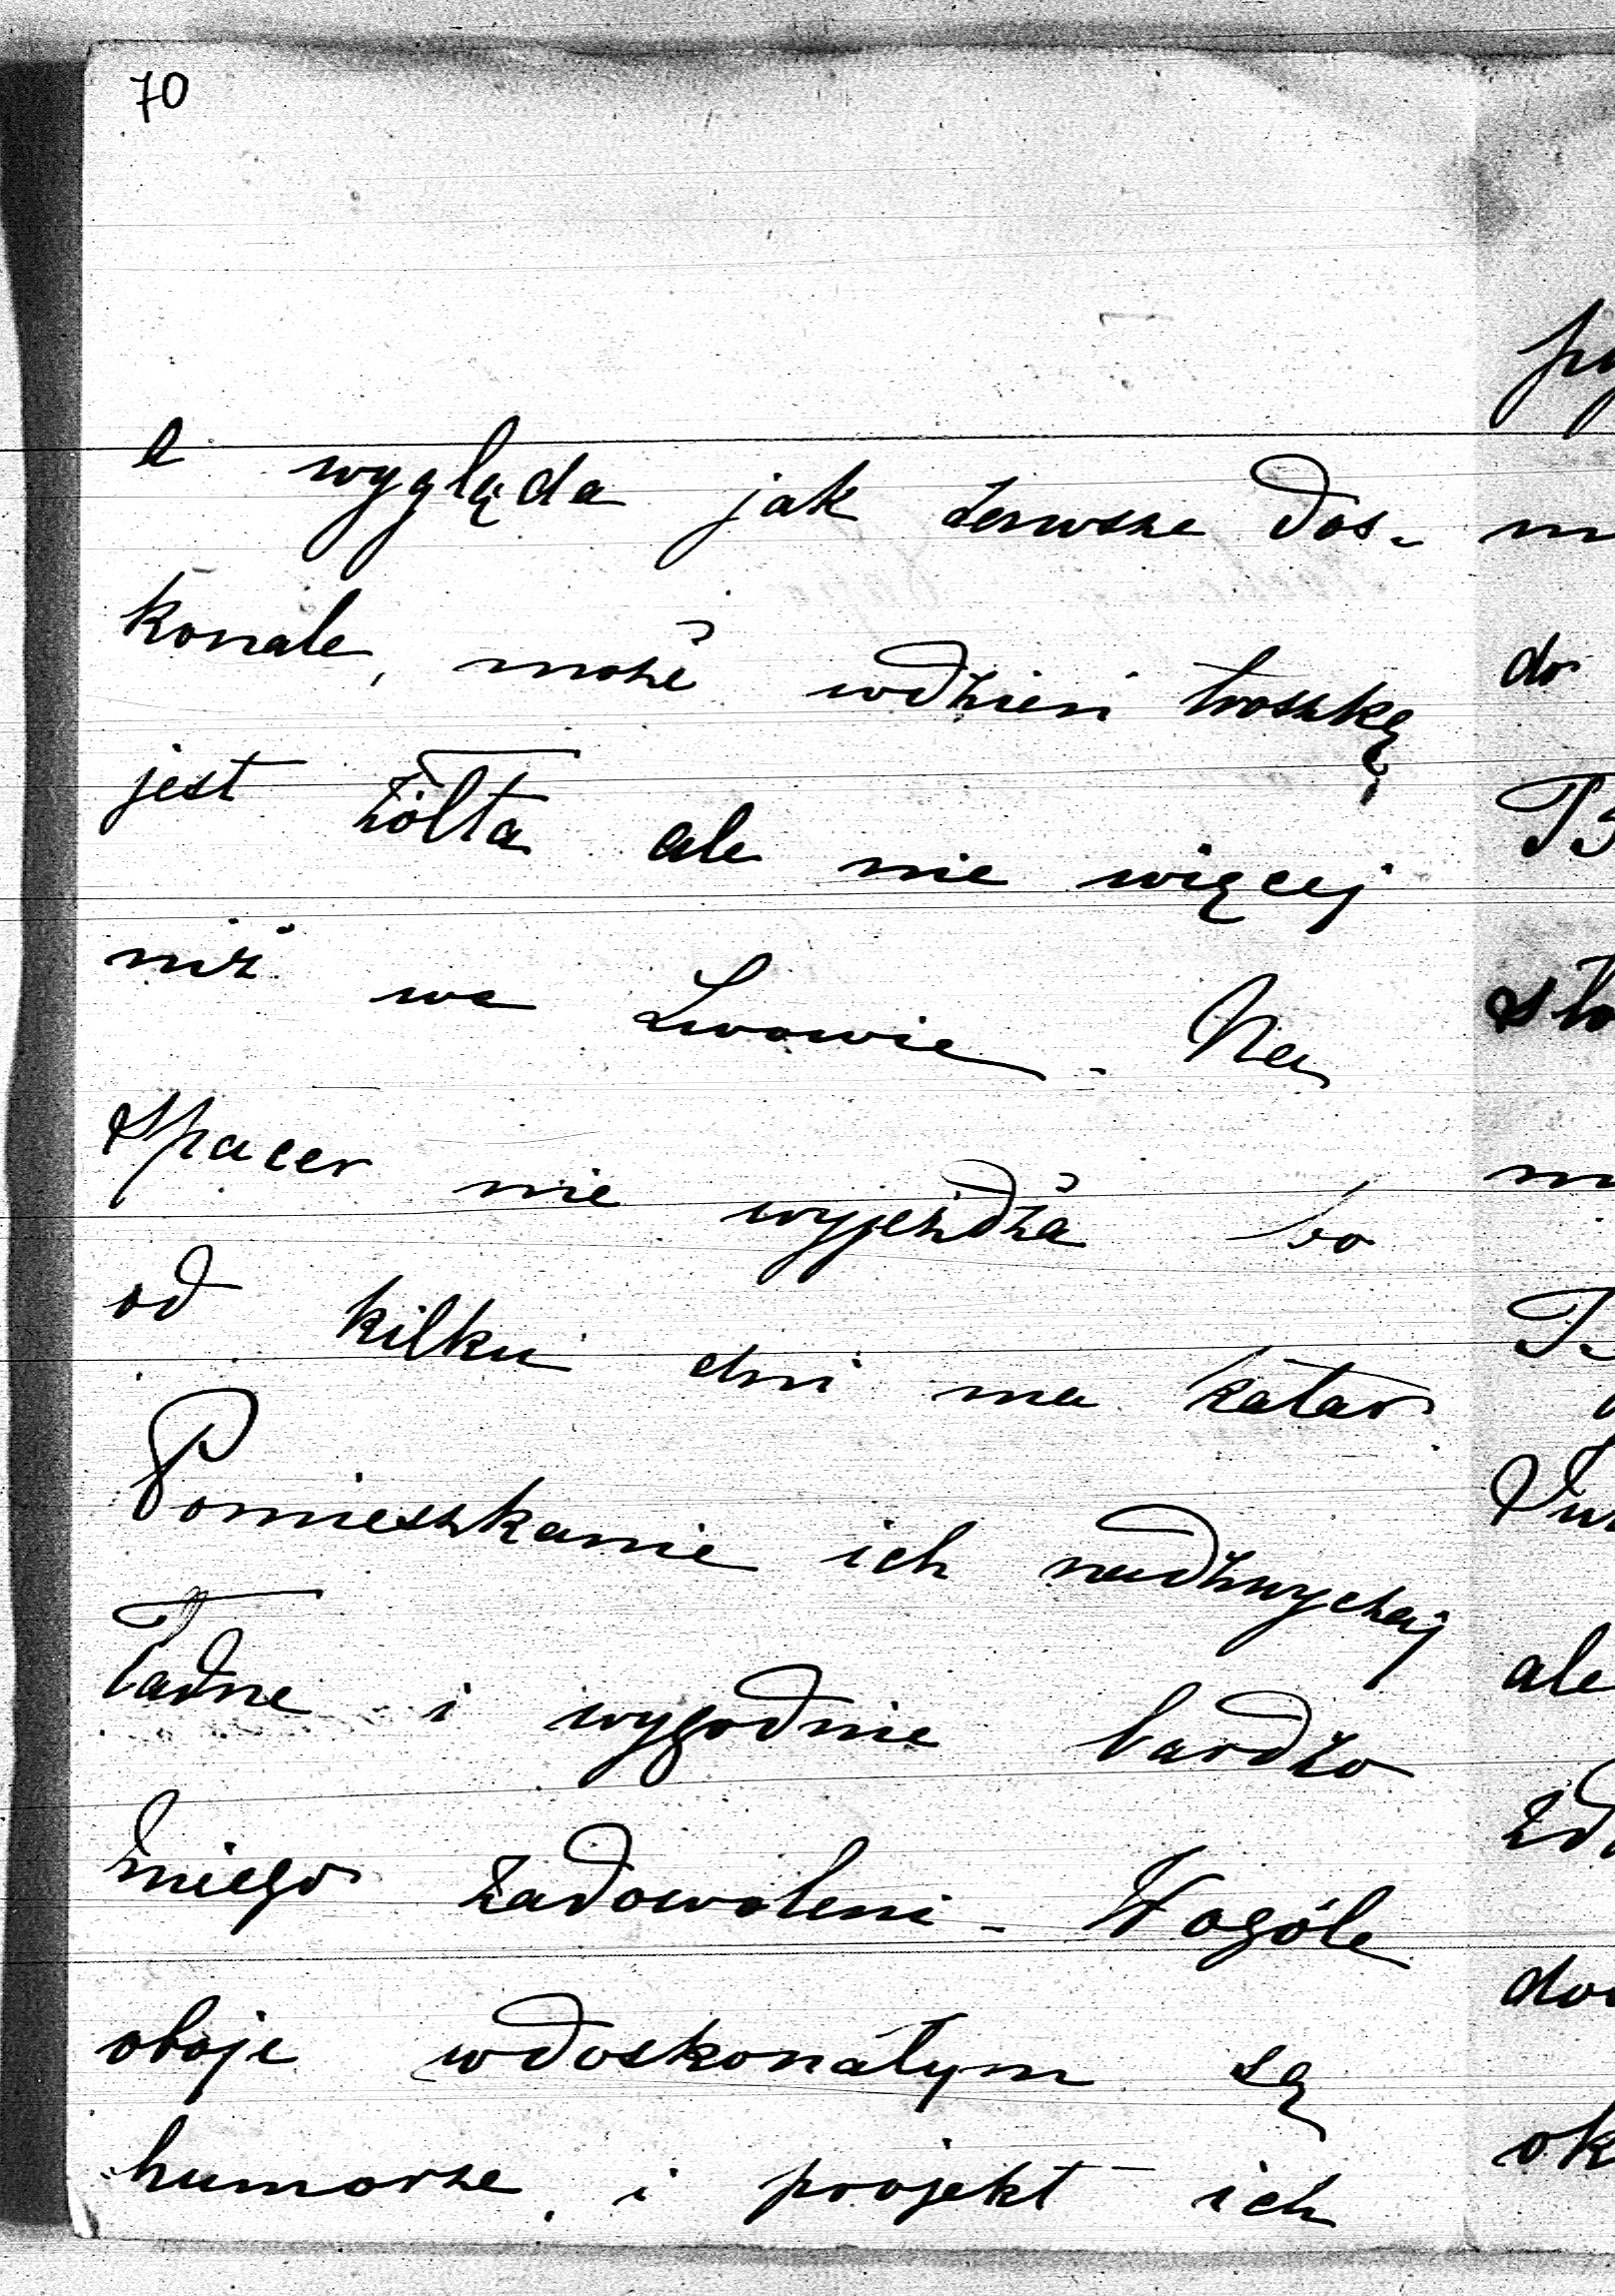 70
a wygląda jak zawsze dos-
konale, może wdzień troszkę
jest żółta ale nie więcej
niż we Lwowie - Na
spacer nie wyjeżdża bo
od kilku dni ma katar.
Pomieszkanie ich nadzwyczaj
ładne i wygodnie bardzo
zniego zadowoleni - W ogóle
oboje wdoskonałym są
humorze, i projekt ich